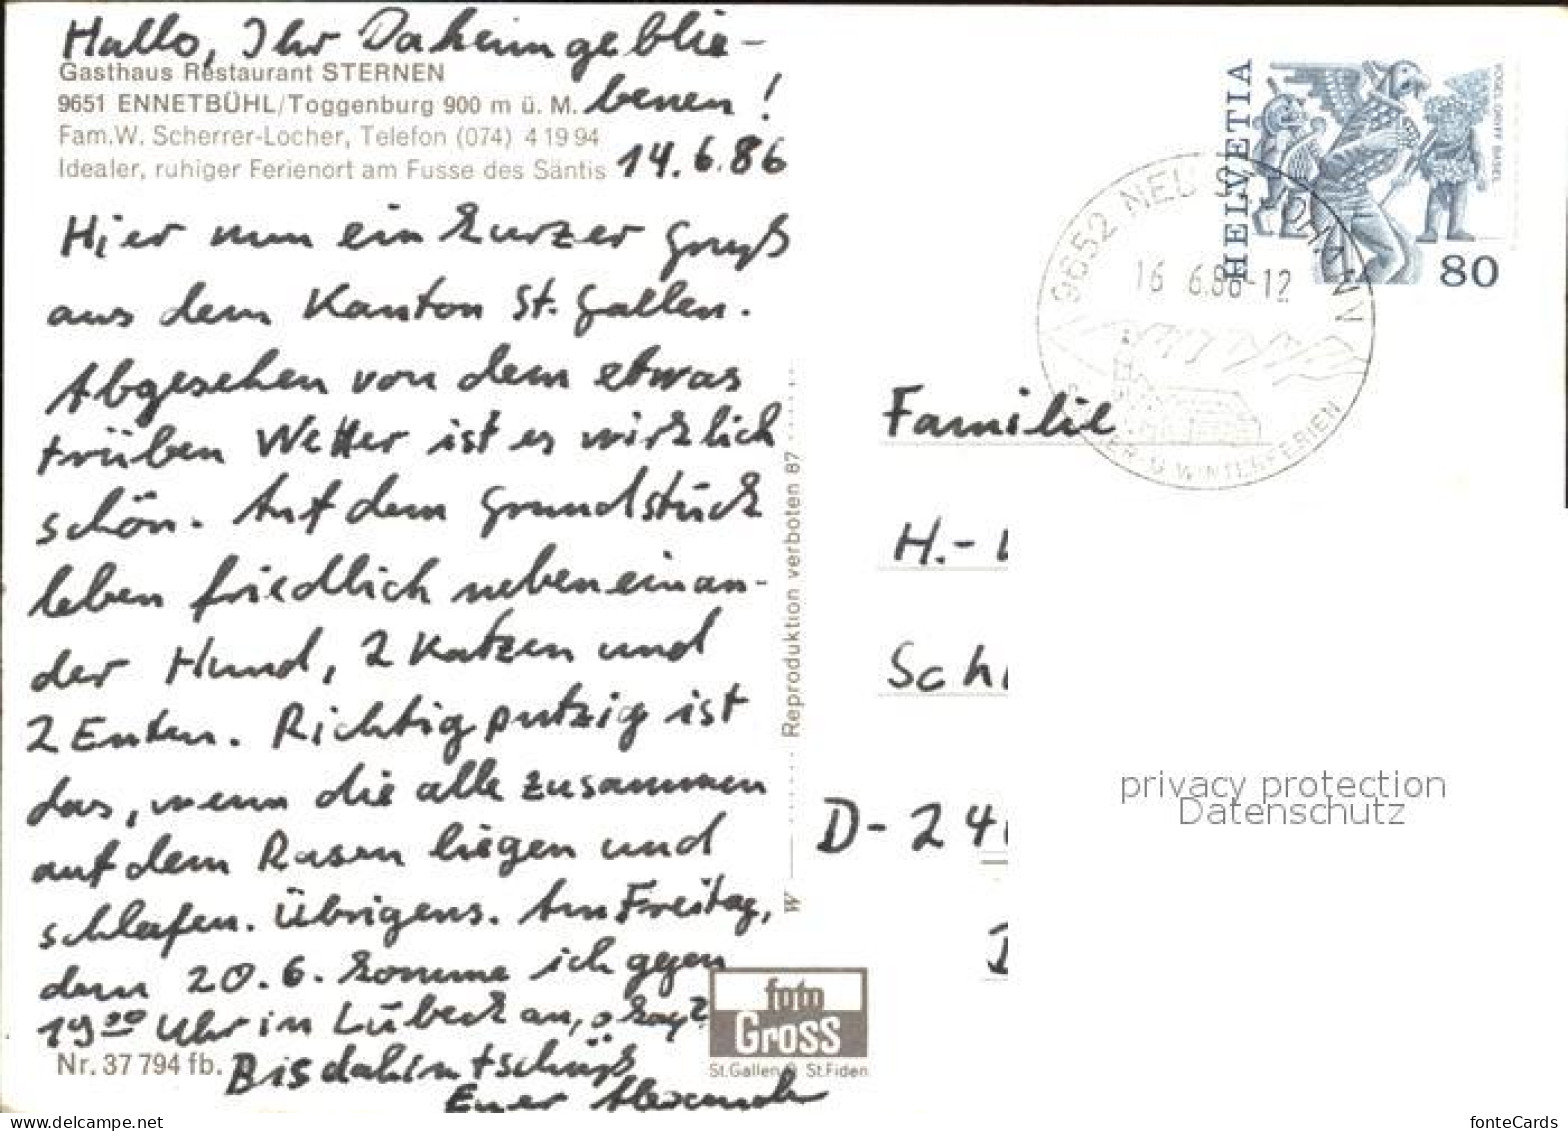 Hallo, Ihr Daheimgeblie-
Gasthaus Restaurant STERNEN
9651 ENNETBÜHL/Toggenburg 900 m ü. M. benen!
Fam.W. Scherrer-Locher, Telefon (074) 4 19 94
Idealer, ruhiger Ferienort am Fusse des Säntis 14.6.86
Hier nun ein kurzer Gruß
aus dem Kanton St. Gallen.
Abgesehen von dem etwas
trüben Wetter ist es wirklich
schön. Auf dem Grundstück
leben friedlich nebeneinan-
der Hund, 2 Katzen und
2 Enten. Richtig putzig ist
das, wenn die alle zusammen
auf dem Rasen liegen und
schlafen. Übrigens. Am Freitag,
dem 20.6. komme ich gegen
19 00 Uhr in Lübeck an, okay?
Nr. 37 794 fb. Bis dahin tschüß
Euer Alexander
W Reproduktion verboten 87
foto
Gross
St.Gallen St.Fiden
HELVETIA
VOGEL GRYFF BASEL
80
9652 NEU ST. JOHANN
16 6.86-12
SOMMER- U. WINTERFERIEN
Familie
H.-
Sch
D-24
privacy protection
Datenschutz
www.delcampe.net
fonteCards